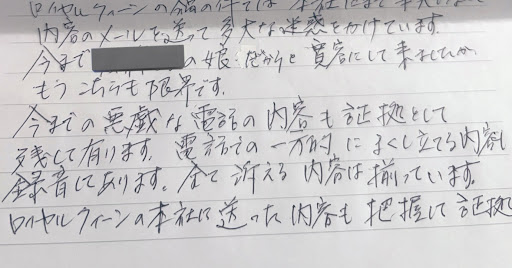 ロイヤルウィーンの猫の件では 本社にまで
内容のメールを送って多大な迷惑をかけています。
今まで の娘だからと寛容にして来ましたが
もうこちらも限界です。
今までの悪戯な電話の内容も証拠として
残して有ります。電話での一方的にまくし立てる内容も
録音してあります。全て訴える内容は揃っています。
ロイヤルウィーンの本社に送った内容も把握して証拠